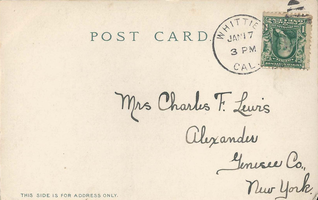 POST CARD
WHITTIE
JAN 17
3 PM
CAL.
Mrs Charles F. Lewis
Alexander
Genesee Co.,
New York.
THIS SIDE IS FOR ADDRESS ONLY.